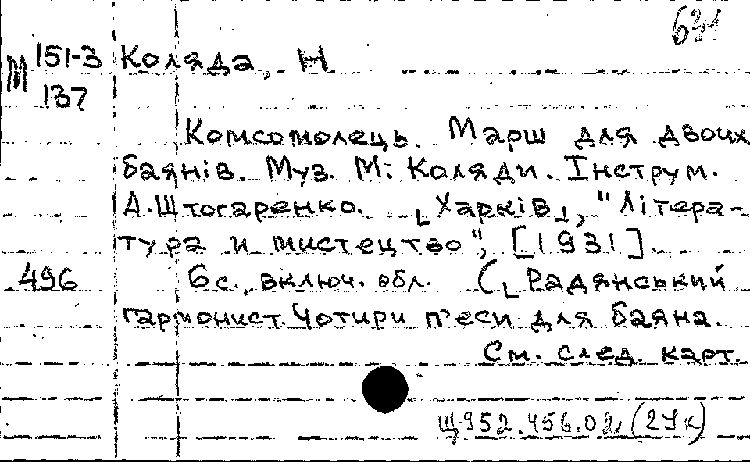 631
М 151-3 Коляда, Н.
137
Комсомолець. Марш для двоих
баянів. Муз. М: Коляди. Інструм.
А. Штогаренко. [Харків], "Літера-
тура и мистецтво", [1931].
496 6 с., включ. обл. ([Радянський
гармонист. Чотири п'еси для баяна.
См. след. карт.
Щ952.456.02,(2Ук)